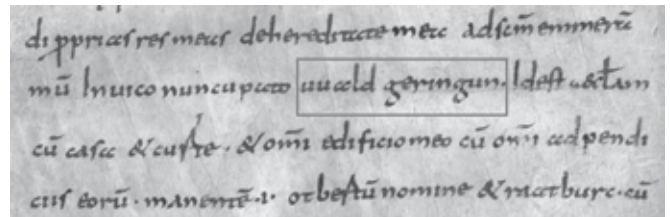 di ꝓprias res meas de hereditate mea ad sc̄m emmerā
mū In uico nuncupato uuald geringun. Id est aecłam
cū casa & curte. & om̄i edificio meo cū om̄i adpendi
ciis eorū. manentē .I. otbertū nomine & ratburc. cū